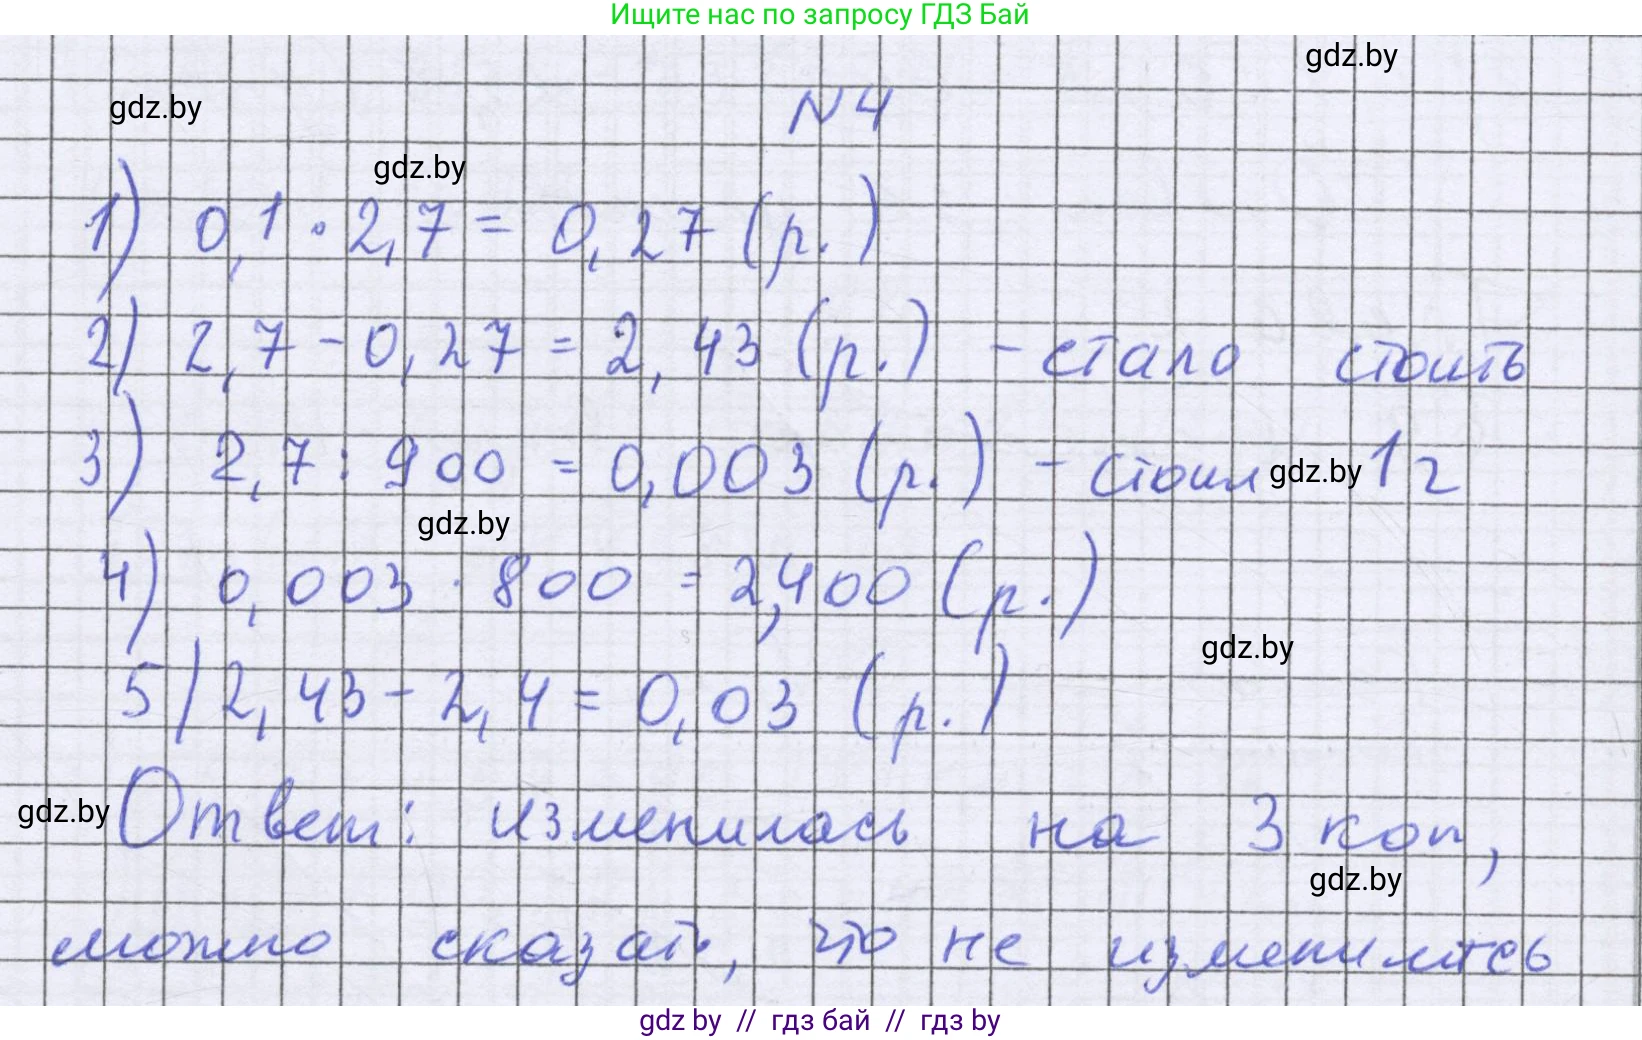 Ищите нас по запросу ГДЗ Бай
gdz.by
gdz.by
N4
gdz.by
1) 0,1 · 2,7 = 0,27 (р.)
2) 2,7 - 0,27 = 2,43 (р.) - стало стоить
3) 2,7 : 900 = 0,003 (р.) - стоил gdz.by 1 г
gdz.by
4) 0,003 · 800 = 2,400 (р.)
gdz.by
5) 2,43 - 2,4 = 0,03 (р.)
gdz.by Ответ: изменилась на 3 коп,
gdz.by
можно сказать, что не изменилась
gdz by // гдз бай // гдз by